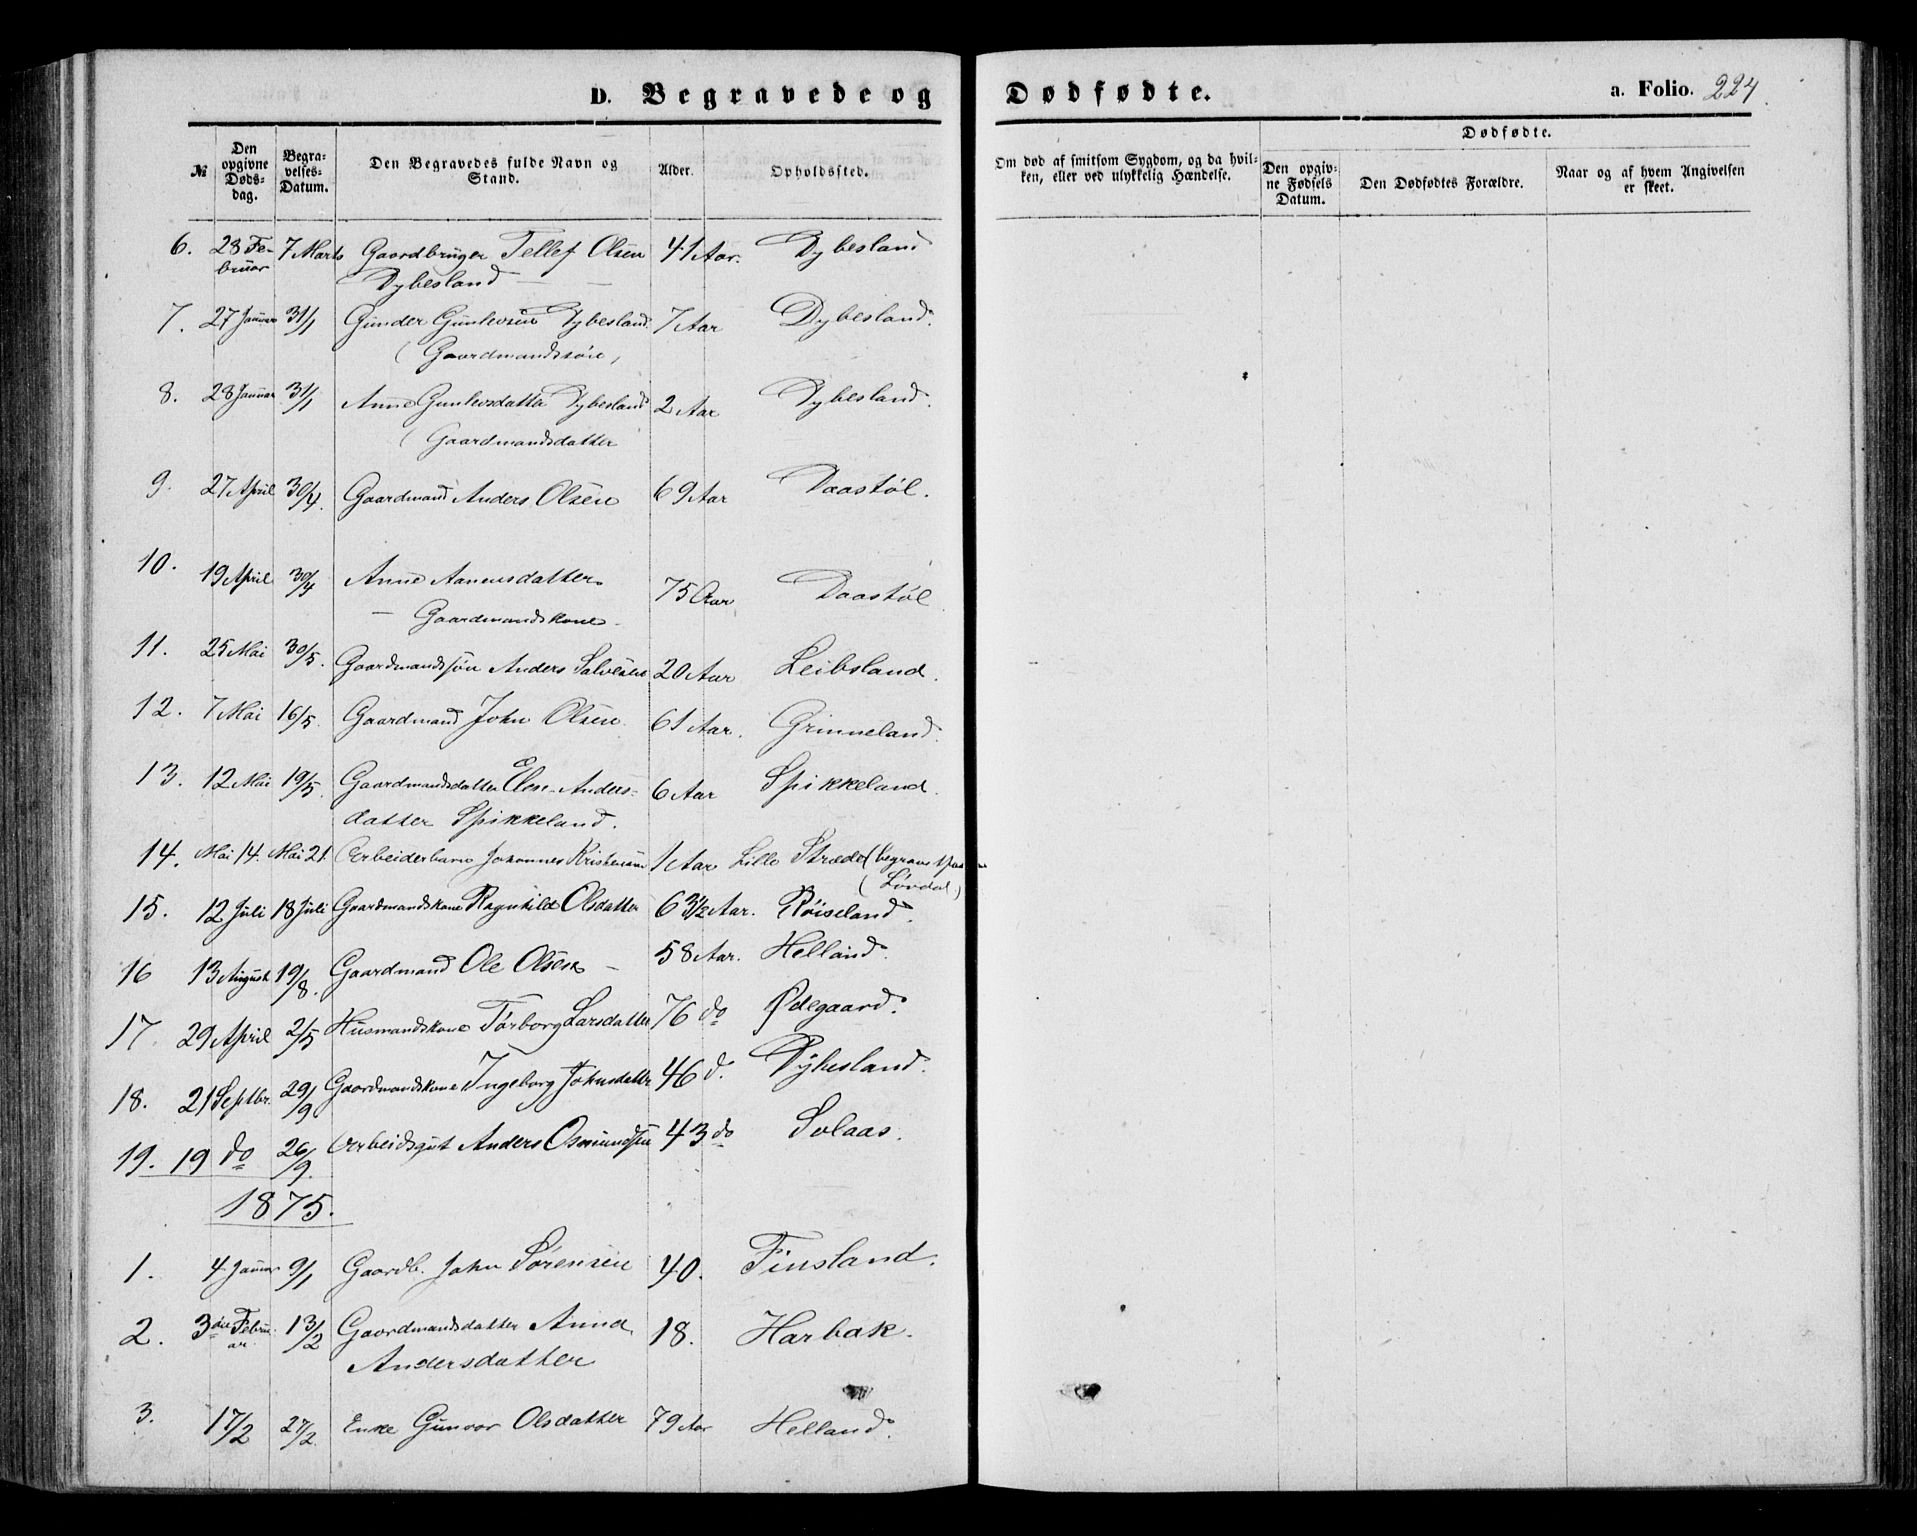 D. Begravede og Dødfødte. a. Folio. 224
№ Den opgivne Døds-dag. Begra-velses-Datum. Den Begravedes fulde Navn og Stand. Alder. Opholdssted. Om død af smitsom Sygdom, og da hvil-ken, eller ved ulykkelig Hændelse. Dødfødte. Den opgiv-ne Fødsels Datum. Den Dødfødtes Forældre. Naar og af hvem Angivelsen er skeet.
6. 28 Fe- 7 Marts Gaardbruger Tellef Olsen 41 Aar. Dybesland
bruar Dybesland
7. 27 Januar 31/1 Gunder Gunlevsen Dybesland 7 Aar Dybesland.
(Gaardmandssøn,
8. 28 Januar 31/1 Anne Gunlevsdatter Dybesland 2 Aar Dybesland.
(Gaardmandsdatter
9. 27 April 30/4. Gaardmand Anders Olsen 69 Aar Daastøl.
10. 19 April 30/4 Anne Aanensdatter 75 Aar Daastøl
— Gaardmandskone
11. 25 Mai 30/5. Gaardmandssøn Anders Salvesen 20 Aar Leibsland.
12. 7 Mai 16/5. Gaardmand John Olsen 61 Aar. Grinneland.
13. 12 Mai 19/5. Gaardmandsdatter Elen Anders- 6 Aar Spikkeland.
datter Spikkeland.
14. Mai 14. Mai 21. Arbeiderbarn Johannes Kristensen 1 Aar Lille Stræde (begravet paa
(Løvdal)
15. 12 Juli 18 Juli Gaardmandskone Ragnhild Olsdatter 63 1/2 Aar. Røiseland.
16 13 August 19/8. Gaardmand Ole Olsen — 58 Aar. Helland.
17. 29 April 2/5 Husmandskone Torborg Larsdatter 76 do Ødegaard.
18. 21 Septbr. 29/9 Gaardmandskone Ingeborg Johnsdatter 46 d. Dybesland.
19. 19 do 26/9. Arbeidsgut Anders Osmundsen 43 do Solaas.
1875.
1. 4 Januar 9/1 Gaardb. John Sørensen 40. Finsland.
2. 3die Febru- 13/2 Gaardmandsdatter Anna 18. Harbak.
ar. Andersdatter
3. 17/2 27/2. Enke Gunvor Olsdatter 79 Aar Helland.